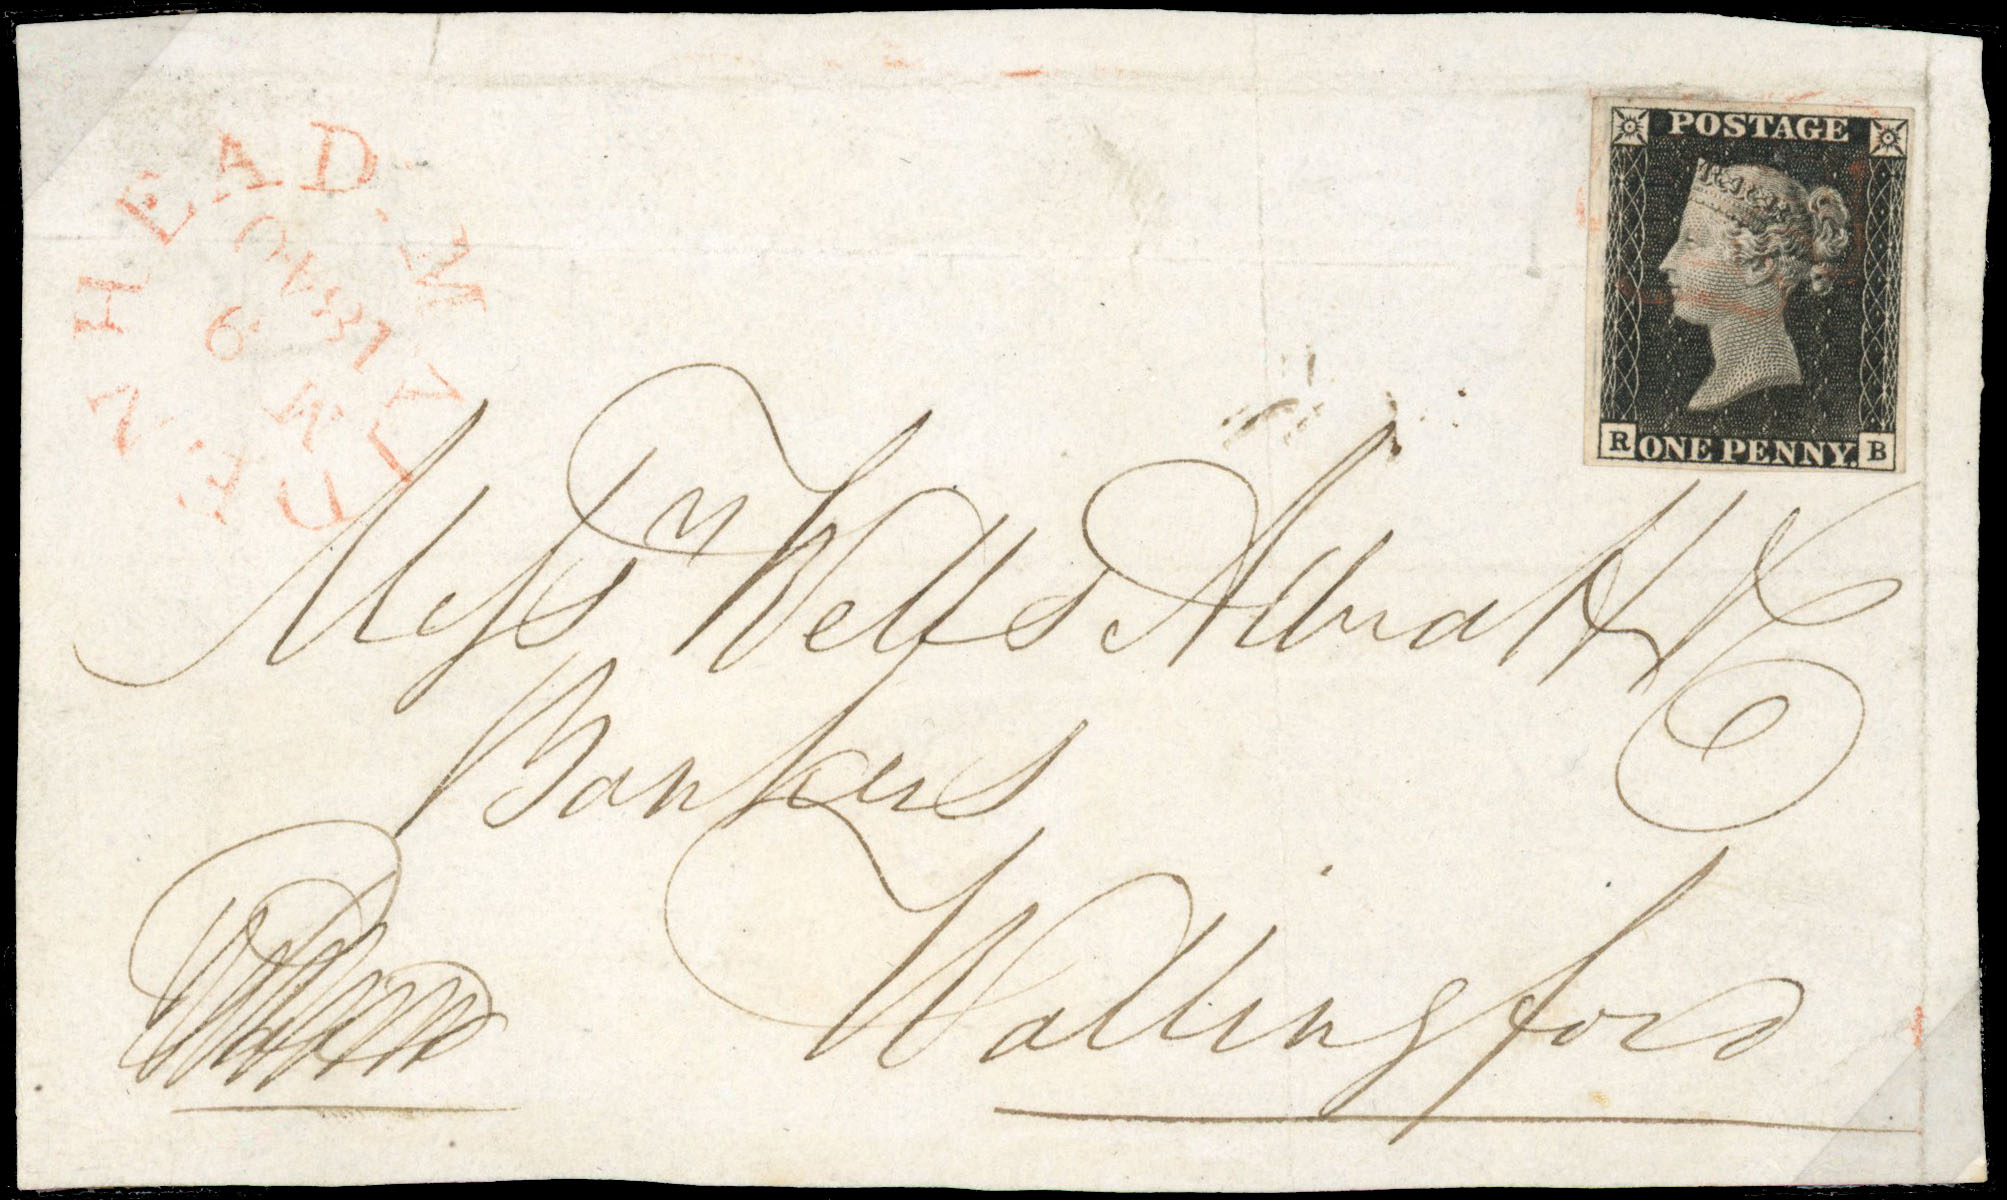 MAIDENHEAD
MY 6
1840
POSTAGE
R ONE PENNY. B
Messrs Wells Allnatt & Co
Bankers
Wallingford